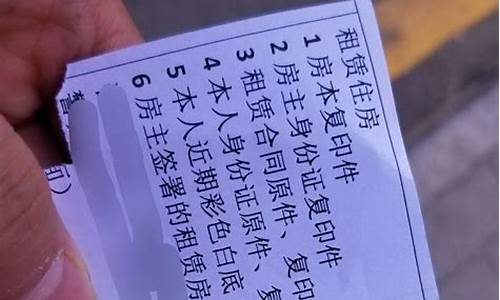 租赁住房
1 房本复印件
2 房主身份证复印件
3 租赁合同原件、复印
4 本人身份证原件、复
5 本人近期彩色白底
6 房主签署的租赁房